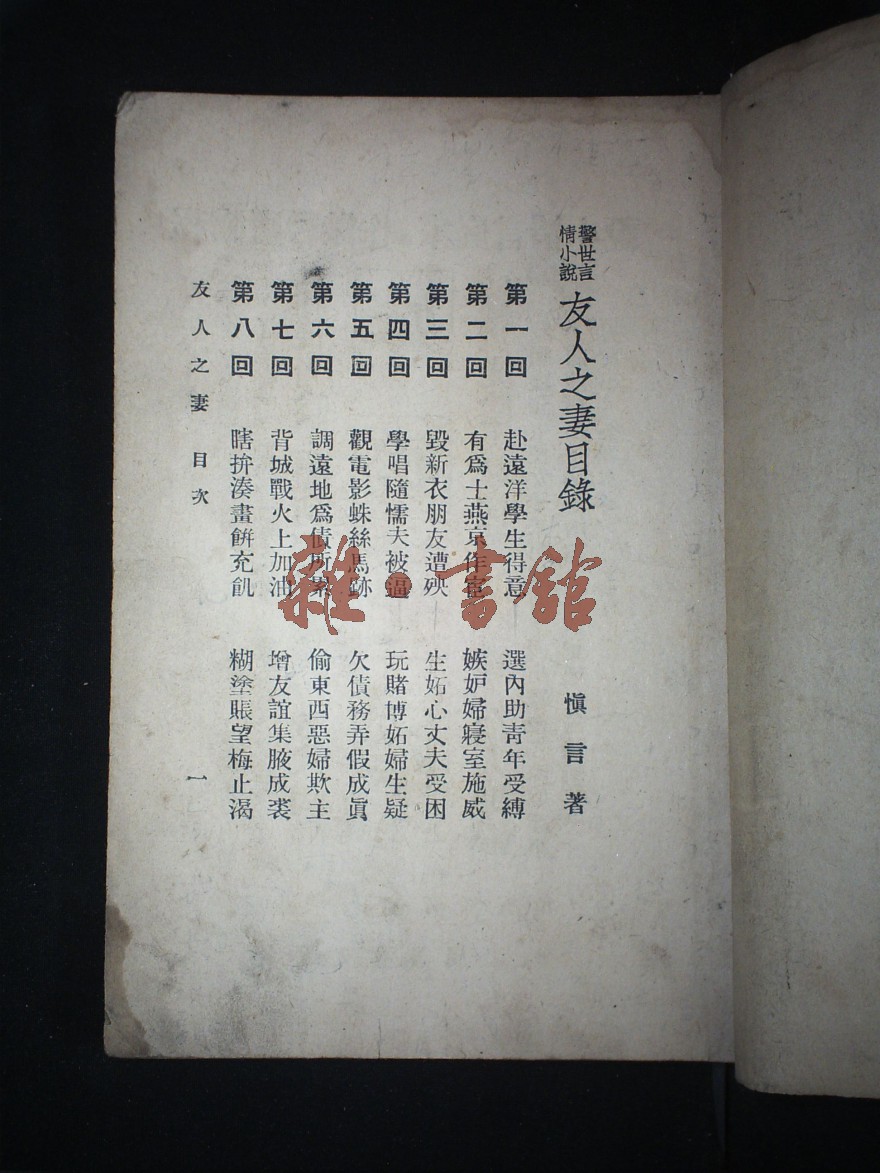 警世言
情小說
友人之妻目錄
愼言著
第一回 赴遠洋學生得意 選內助靑年受縛
第二回 有爲士燕京作宦 嫉妒婦寢室施威
第三回 毀新衣朋友遭殃 生妬心丈夫受困
第四回 學唱隨懦夫被逼 玩賭博妬婦生疑
第五回 觀電影蛛絲馬跡 欠債務弄假成眞
第六回 調遠地爲債所累 偷東西惡婦欺主
第七回 背城戰火上加油 增友誼集腋成裘
第八回 瞎拚湊畫餠充飢 糊塗賬望梅止渴
友人之妻 目次 一
雜·書館